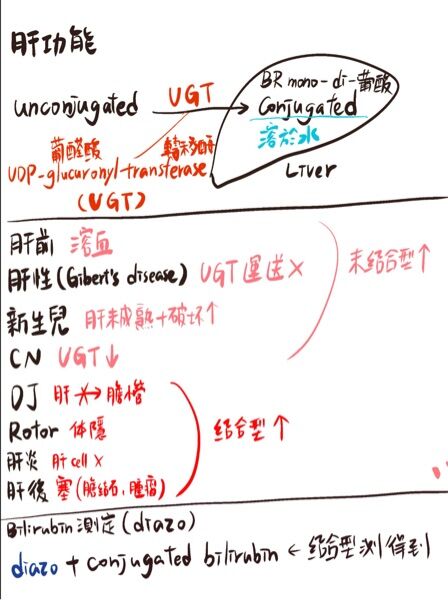 肝功能
BR mono-di-葡酸
unconjugated → UGT Conjugated
溶於水
葡醛酸 轉移酶
UDP-glucuronyl transferase
(UGT)
Liver
肝前 溶血
肝性(Gibert's disease) UGT運送× 未結合型↑
新生兒 肝未成熟+破坏↑
CN UGT↓
DJ 肝 ×→ 膽管
Rotor 体隱 結合型↑
肝炎 肝cell ×
肝後 塞(膽結石,腫瘤)
Bilirubin測定(diazo)
diazo + conjugated bilirubin ← 結合型測得到